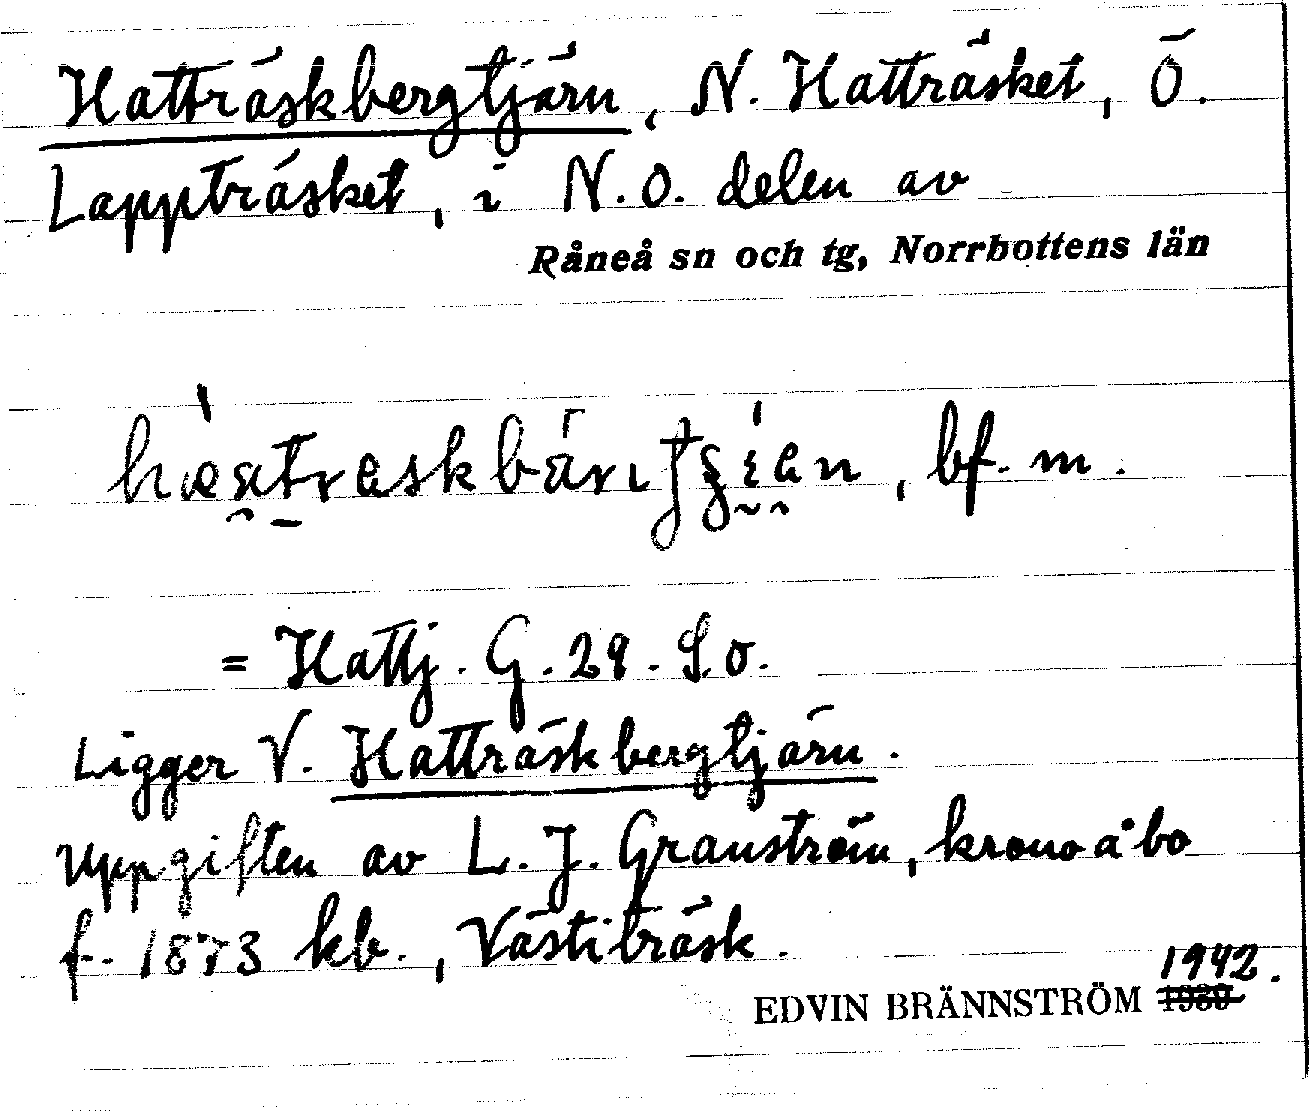 Hatträskbergtjärn, N. Hatträsket, Ö.
Lappträsket, i N.O. delen av
Råneå sn och tg, Norrbottens län
bf. m.
= Hattj. G. 29. S.o.
Ligger V. Hatträskbergtjärn.
Uppgiften av L. J. Granström, kronoåbo
f. 1873 kb., Västiträsk.
1942.
EDVIN BRÄNNSTRÖM 1939